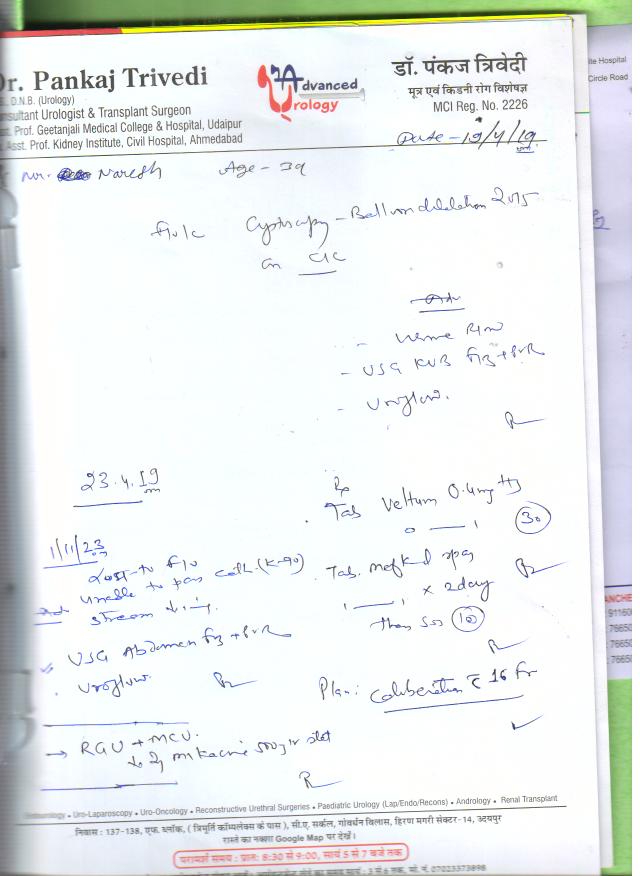 Dr. Pankaj Trivedi
D.N.B. (Urology)
nsultant Urologist & Transplant Surgeon
Prof. Geetanjali Medical College & Hospital, Udaipur
Asst. Prof. Kidney Institute, Civil Hospital, Ahmedabad
Advanced
Urology
डॉ. पंकज त्रिवेदी
मूत्र एवं किडनी रोग विशेषज्ञ
MCI Reg. No. 2226
ite Hospital
Circle Road
Date - 19/4/19
Mr. Naresh Age - 39
F/U/C Cystoscopy - Balloon dilatation 2015
on CIC
- Urine R/M
- USG KUB + PVR
- Uroflow.
23.4.19
Tab Veltam 0.4mg
30
1/11/23
Lost to F/U
unable to pass cath.
stream
Tab. Mefkind spas
x 2day
then SOS 10
USG Abdomen + PVR
Uroflow
Plan: Caliberation c 16 Fr
→ RGU + MCU.
ANCHE
91160
76650
76650
76650
• Uro-Laparoscopy • Uro-Oncology • Reconstructive Urethral Surgeries • Paediatric Urology (Lap/Endo/Recons) • Andrology • Renal Transplant
निवास : 137-138, एफ. ब्लॉक, ( त्रिमूर्ति कॉम्पलेक्स के पास ), सी.ए. सर्कल, गोवर्धन विलास, हिरण मगरी सेक्टर-14, उदयपुर
रास्ते का नक्शा Google Map पर देखें।
परामर्श समय : प्रातः 8:30 से 9:00, सायं 5 से 7 बजे तक
सायं : 3 से 6 तक, मो. नं. 07023373898